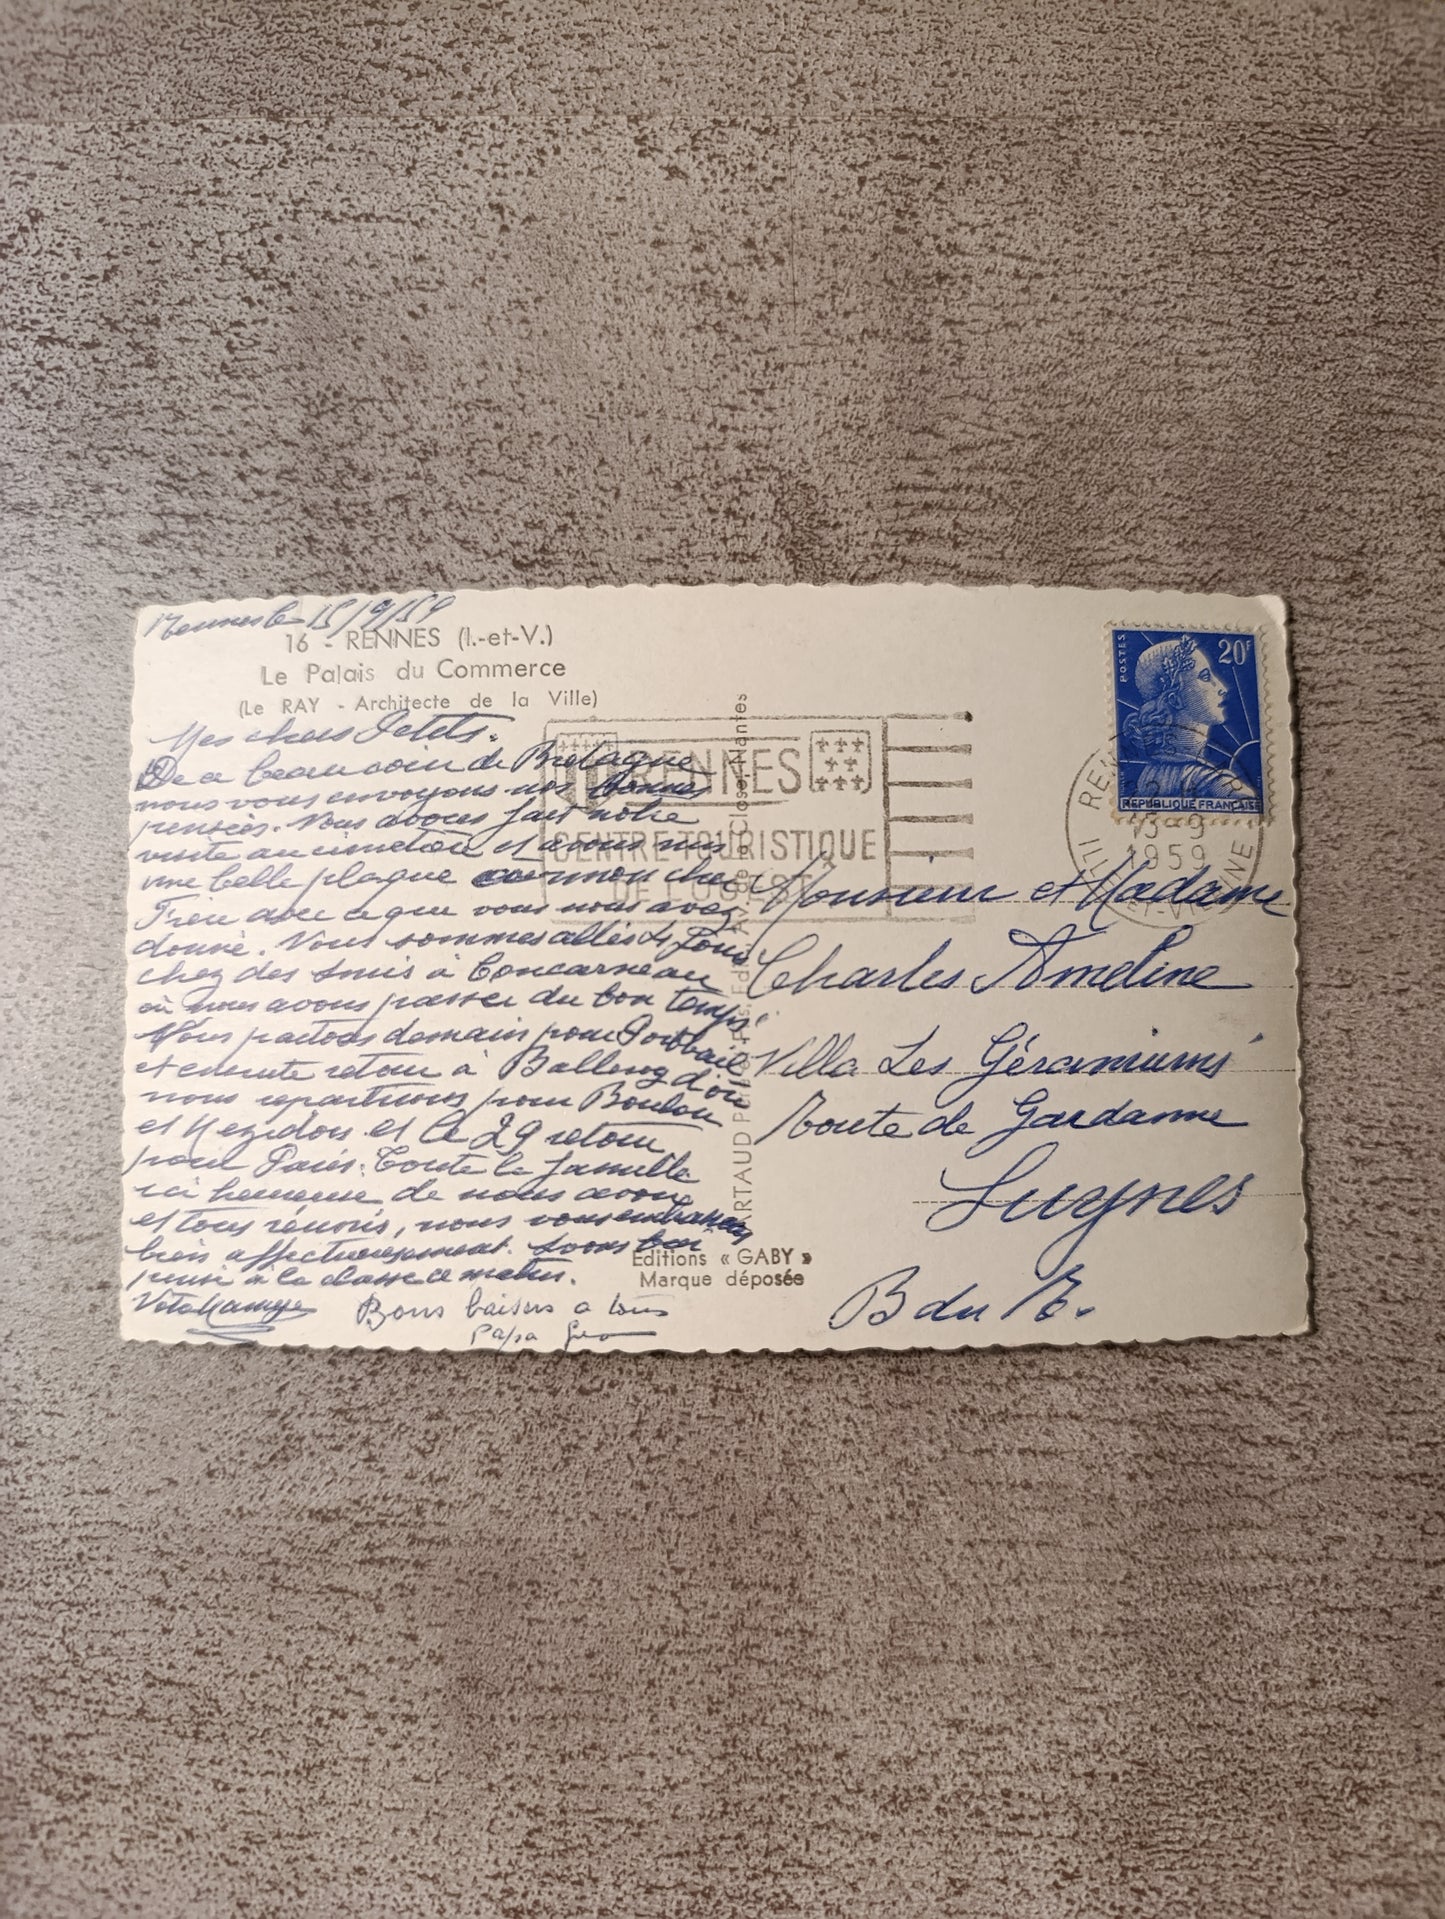 Rennes le 15/9/59
16 - RENNES (I.-et-V.)
Le Palais du Commerce
(Le RAY - Architecte de la Ville)
Mes chers Petits.
De ce beau coin de Bretagne
nous vous envoyons nos bonnes
pensées. Nous avons fait notre
visite au cimetière et avons mis
une belle plaque mon cher
Frère avec ce que vous nous avez
donné. Nous sommes allés
chez des amis à Concarneau
où nous avons passer du bon temps.
Nous partons demain pour
et ensuite retour à d'où
nous repartirons pour
et Mezidon et le 29 retour
pour Paris. Toute la famille
ici heureuse de nous avoir
et tous réunis, nous vous embrassons
bien affectueusement. Avons
pensé à la classe ce matin.
Bons baisers a tous
Papa
RENNES
CENTRE TOURISTIQUE
DE L'OUEST
Editions « GABY »
Marque déposée
ARTAUD
Nantes
POSTES
20F
REPUBLIQUE FRANÇAISE
13-9
1959
Monsieur et Madame
Charles Ameline
Villa Les Géraniums
Route de Gardanne
Luynes
B du R.